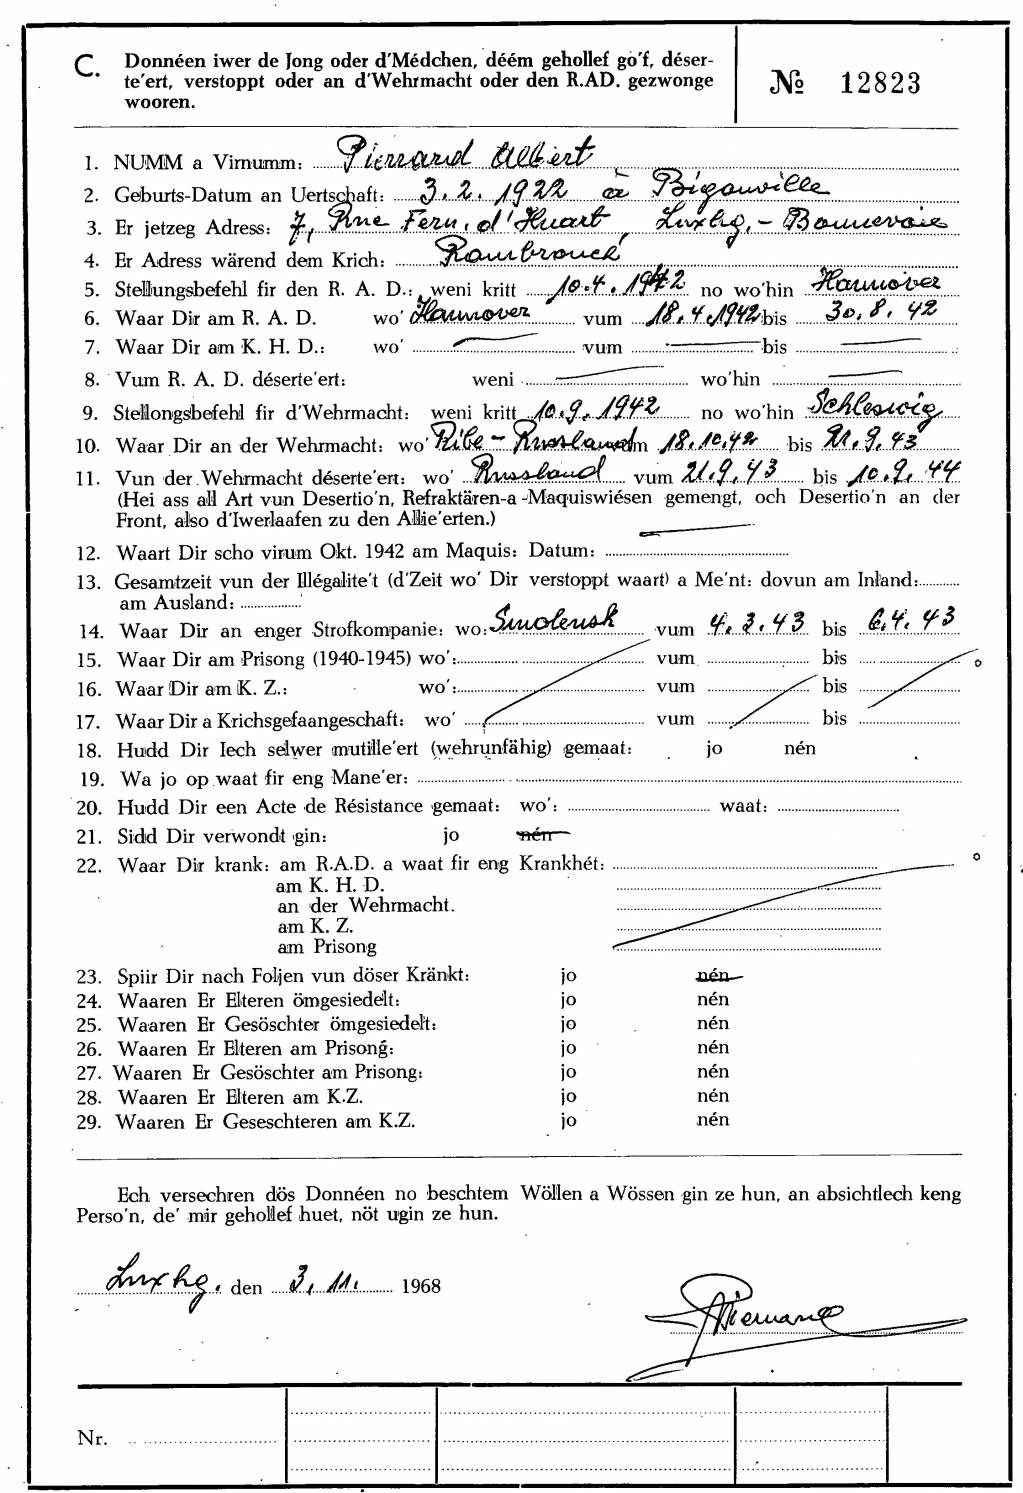 C. Donnéen iwer de Jong oder d'Médchen, déém gehollef gö'f, déser-
te'ert, verstoppt oder an d'Wehrmacht oder den R.AD. gezwonge
wooren.
№ 12823
1. NUMM a Virnumm: Pierrard Albert
2. Geburts-Datum an Uertschaft: 3.2.1922 à Bigonville
3. Er jetzeg Adress: 7, Rue Fern. d'Huart, Luxbg,-Bonnevoie
4. Er Adress wärend dem Krich: Rambrouch
5. Stellungsbefehl fir den R. A. D.: weni kritt 10.4.1942 no wo'hin Hannover
6. Waar Dir am R. A. D. wo' Hannover vum 18.4.1942 bis 30.8.42
7. Waar Dir am K. H. D.: wo' vum bis
8. Vum R. A. D. déserte'ert: weni wo'hin
9. Stellongsbefehl fir d'Wehrmacht: weni kritt 10.9.1942 no wo'hin Schleswig
10. Waar Dir an der Wehrmacht: wo' Ribe - Russland 18.10.42 bis 21.9.43
11. Vun der Wehrmacht déserte'ert: wo' Russland vum 21.9.43 bis 10.9.44
(Hei ass all Art vun Desertio'n, Refraktären-a -Maquiswiésen gemengt, och Desertio'n an der
Front, also d'Iwerlaafen zu den Allie'erten.)
12. Waart Dir scho virum Okt. 1942 am Maquis: Datum:
13. Gesamtzeit vun der Illégalite't (d'Zeit wo' Dir verstoppt waart) a Me'nt: dovun am Inland:
am Ausland:
14. Waar Dir an enger Strofkompanie: wo: Smolensk vum 4.3.43 bis 6.4.43
15. Waar Dir am Prisong (1940-1945) wo': vum bis
16. Waar Dir am K. Z.: wo': vum bis
17. Waar Dir a Krichsgefaangeschaft: wo' vum bis
18. Hudd Dir Iech selwer mutille'ert (wehrunfähig) gemaat: jo nén
19. Wa jo op waat fir eng Mane'er:
20. Hudd Dir een Acte de Résistance gemaat: wo': waat:
21. Sidd Dir verwondt gin: jo nén
22. Waar Dir krank: am R.A.D. a waat fir eng Krankhét:
am K. H. D.
an der Wehrmacht.
am K. Z.
am Prisong
23. Spiir Dir nach Foljen vun döser Kränkt: jo nén
24. Waaren Er Elteren ömgesiedelt: jo nén
25. Waaren Er Gesöschter ömgesiedelt: jo nén
26. Waaren Er Elteren am Prisong: jo nén
27. Waaren Er Gesöschter am Prisong: jo nén
28. Waaren Er Elteren am K.Z. jo nén
29. Waaren Er Geseschteren am K.Z. jo nén
Ech versechren dös Donnéen no beschtem Wöllen a Wössen gin ze hun, an absichtlech keng
Perso'n, de' mir gehollef huet, nöt ugin ze hun.
Luxbg. den 3.11. 1968
Pierrard
Nr.